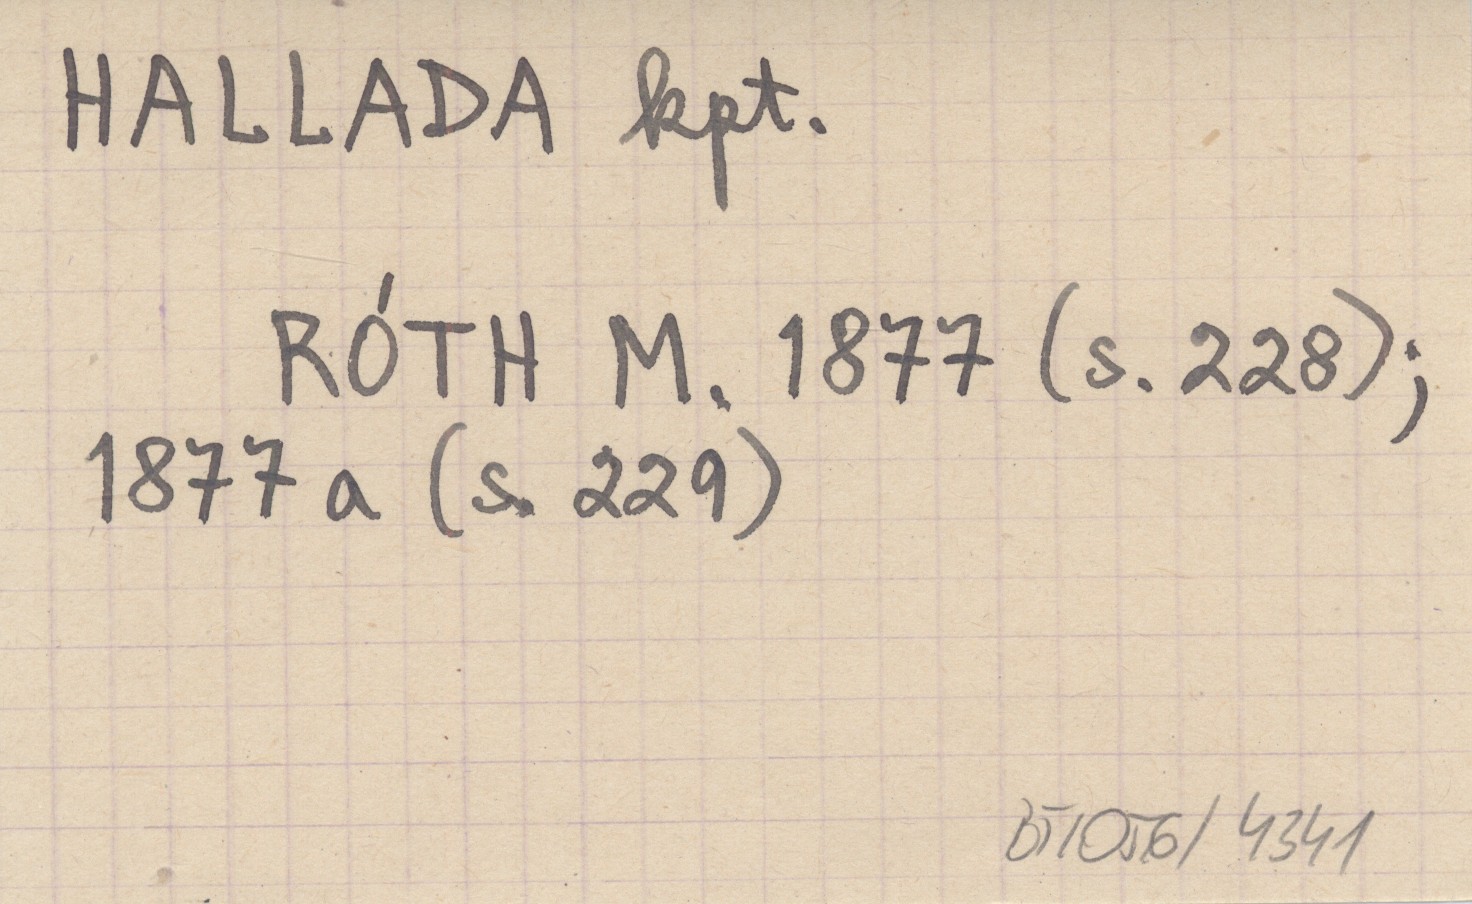 HALLADA kpt.
RÓTH M. 1877 (s. 228);
1877 a (s. 229)
4341